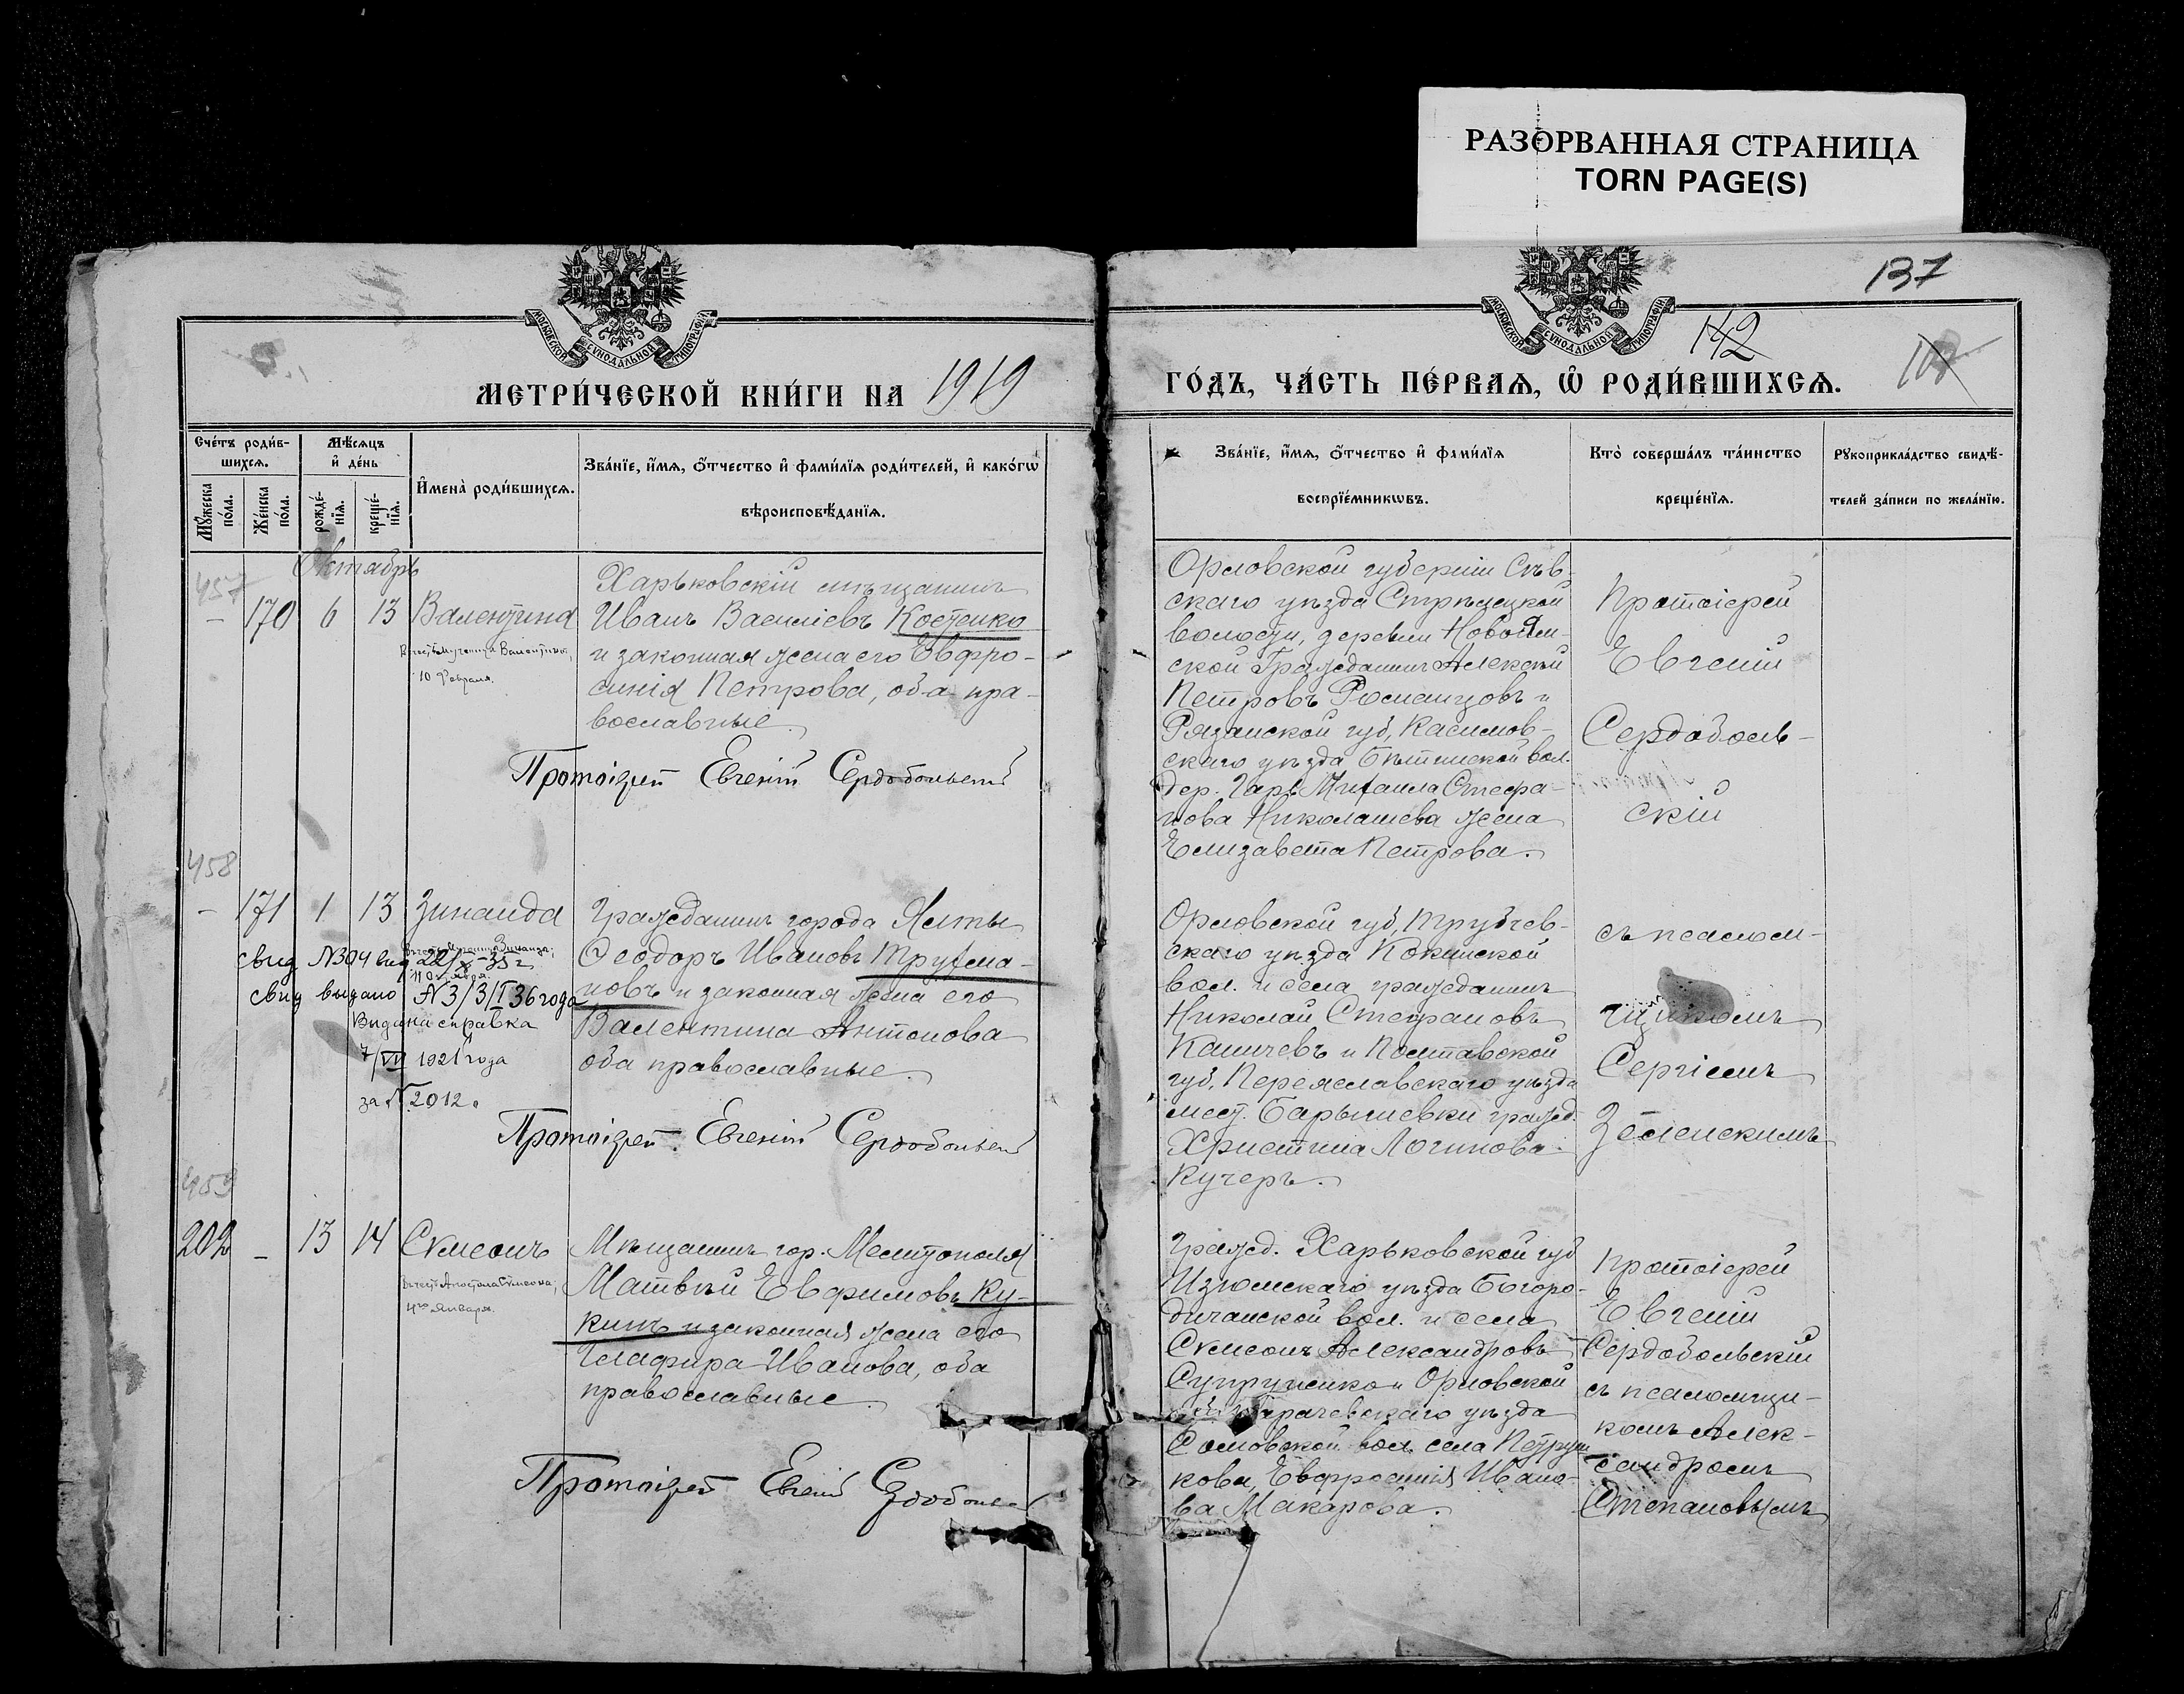 РАЗОРВАННАЯ СТРАНИЦА
TORN PAGE(S)
137
142
МОСКОВСКОЙ СѴНОДАЛЬНОЙ ТИПОГРАФІИ
МОСКОВСКОЙ СѴНОДАЛЬНОЙ ТИПОГРАФІИ
МЕТРИ́ЧЕСКОЙ КНИ́ГИ НА 1919
ГО́ДЪ, ЧА́СТЬ ПЕ́РВАѦ, Ѡ҆ РОДИ́ВШИХСѦ.
Сче́тъ роди́в-
шихсѧ.
Мѣ́сѧцъ
и҆ де́нь
И҆мена̀ роди́вшихсѧ.
Зва́нїе, и҆́мѧ, ѻ҆́тчество и҆ фами́лїѧ роди́телей, и҆ како́гѡ
вѣроисповѣ́данїѧ.
Мꙋ́жеска
по́ла.
Же́нска
по́ла.
рожде́-
нїѧ.
креще́-
нїѧ.
Зва́нїе, и҆́мѧ, ѻ҆́тчество и҆ фами́лїѧ
воспрїе́мникѡвъ.
Кто̀ соверша́лъ та́инство
креще́нїѧ.
Рꙋкоприкла́дство свидѣ́-
телей за́писи по жела́нїю.
Октябрь
457
– 170 6 13 Валентина
Мученицы Валентины,
10 Февраля.
Харьковскій мѣщанинъ
Иванъ Василіевъ Костенко
и законная жена его Евфро-
синія Петрова, оба пра-
вославные.
Протоіерей Евгеній Сердобольскій
Орловской губерніи Сѣв-
скаго уѣзда Стрѣлецкой
волости, деревни Новоям-
ской Гражданинъ Алексѣй
Петровъ Росманцовъ и
Рязанской губ, Касимов-
скаго уѣзда Бѣтинской вол.
дер. Гари Михаила Стефа-
нова Николашева жена
Елизавета Петрова.
Протоіерей
Евгеній
Сердоболь-
скій
458
– 171 1 13 Зинаида
свид N304 выд 22/X-35 г
свид выдано N 3/3/I 36 года
Выдана справка
7/VII 1921 года
за № 2012.
Гражданинъ города Ялты
Ѳеодоръ Ивановъ Трухма-
новъ и законная жена его
Валентина Антонова
оба православные.
Протоіерей Евгеній Сердобольскій
Орловской губ, Трубчев-
скаго уѣзда Кокинской
вол. и села гражданинъ
Николай Стефановъ
Каничевъ и Полтавской
губ, Переяславскаго уѣзда
мест. Барышевки гражд.
Христина Логинова
Кучеръ.
съ псалом-
щикомъ
Сергіемъ
Зеленскимъ
459
202 – 13 14 Сѵмеонъ
Апостола Сѵмеона,
4го Января.
Мѣщанинъ гор. Мелитополя
Матвѣй Евфимовъ Ку-
кинъ и законная жена его
Глафира Иванова, оба
православные.
Протоіерей Евгеній Сердобольскій
Гражд. Харьковской губ
Изюмскаго уѣзда Богоро-
дичанской вол. и села
Сѵмеонъ Александровъ
Супруненко и Орловской
Карачевскаго уѣзда
Соловской вол. села Петруш-
кова, Евфросинія Ивано-
ва Макарова.
Протоіерей
Евгеній
Сердобольскій
съ псаломщи-
комъ Алек-
сандромъ
Степановымъ